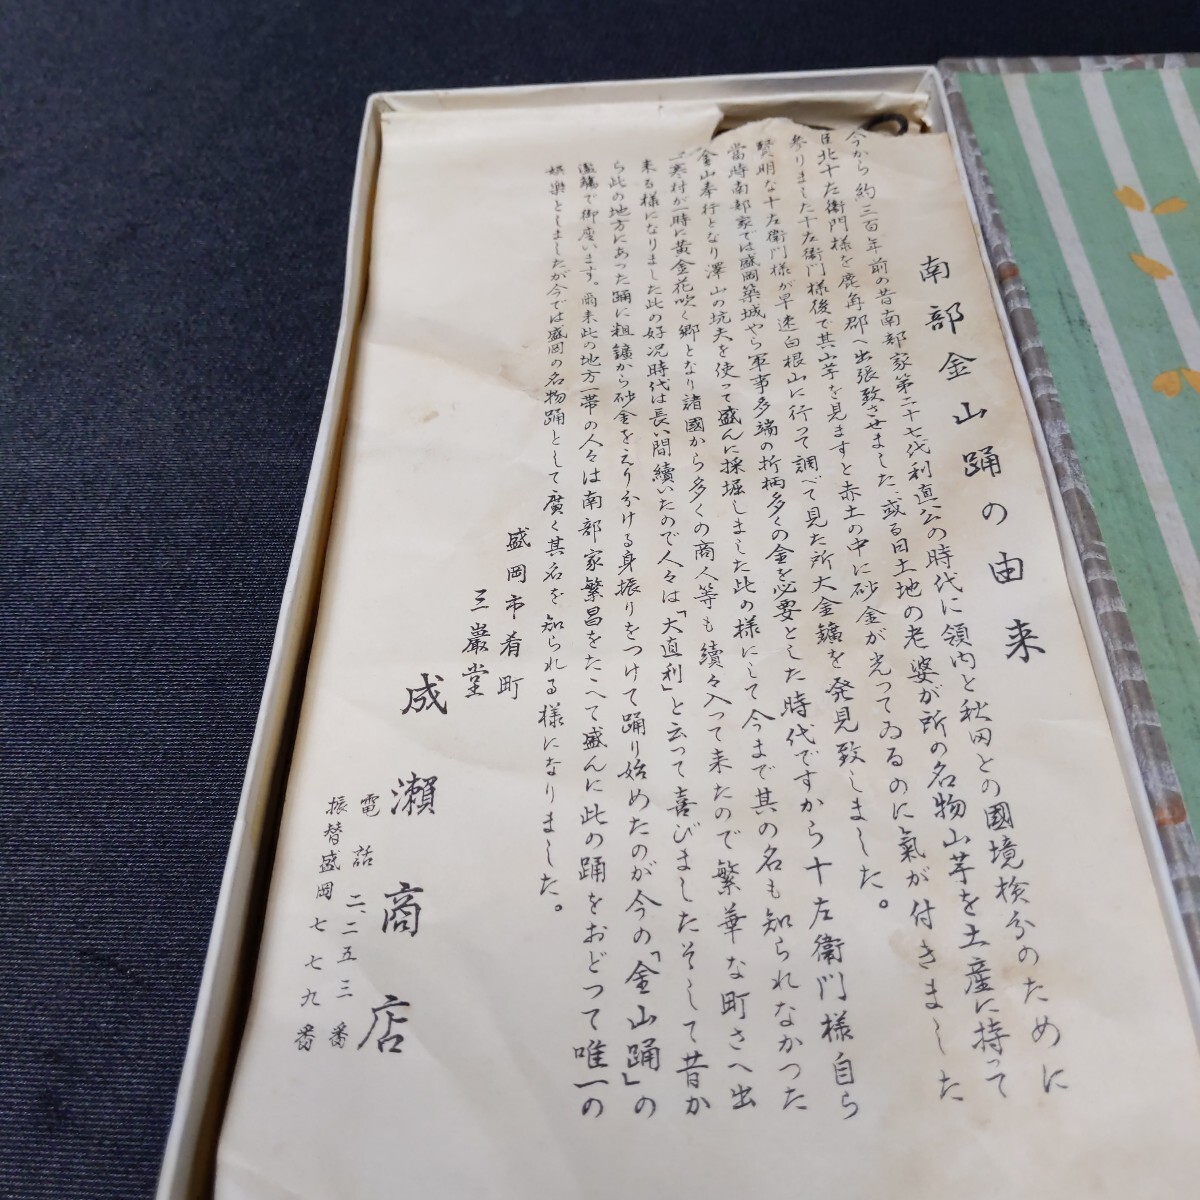 南部金山踊の由来
今から約三百年前の昔南部家第二十七代利直公の時代に領内と秋田との國境検分のために
臣北十左衛門様を鹿角郡へ出張致させました、或る日土地の老婆が所の名物山芋を土産に持って
参りました十左衛門様後で其山芋を見ますと赤土の中に砂金が光ってゐるのに氣が付きました
賢明な十左衛門様が早速白根山に行って調べて見た所大金鑛を発見致しました。
當時南部家では盛岡築城やら軍事多端の折柄多くの金を必要とした時代ですから十左衛門様自ら
金山奉行となり澤山の坑夫を使って盛んに採堀しました此の様にして今まで其の名も知られなかった
一寒村が一時に黄金花吹く郷となり諸國から多くの商人等も續々入って来たので繁華な町さへ出
来る様になりました此の好况時代は長い間續いたので人々は「大直利」と云って喜びましたそして昔か
ら此の地方にあった踊に粗鑛から砂金をえりわける身振りをつけて踊り始めたのが今の「金山踊」の
濫觴で御座います。爾来此の地方一帯の人々は南部家繁昌をたゝへて盛んに此の踊をおどって唯一の
娯楽としましたが今では盛岡の名物踊として廣く其名を知られる様になりました。
盛岡市肴町
三巖堂
成瀬商店
電話 二、二五三番
振替盛岡七七九番